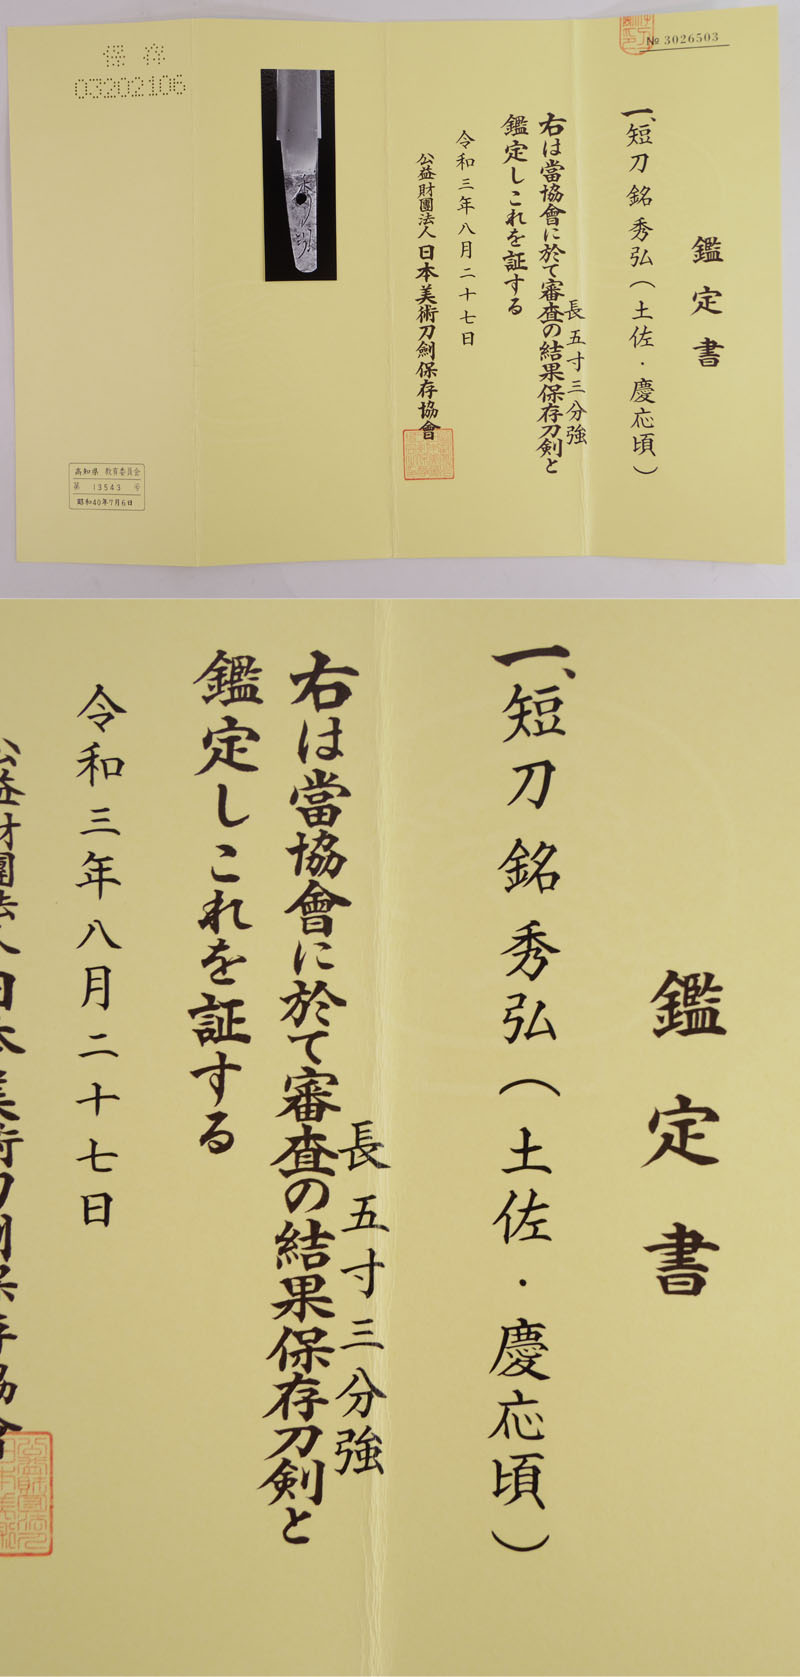 № 3026503
鑑定書
一、短刀 銘 秀弘(土佐・慶応頃)
長五寸三分強
右は當協會に於て審査の結果保存刀剣と
鑑定しこれを証する
令和三年八月二十七日
公益財團法人日本美術刀劍保存協會
保存
03202106
高知県 教育委員会
第 13543 号
昭和40年7月6日
鑑定書
一、短刀 銘 秀弘(土佐・慶応頃)
長五寸三分強
右は當協會に於て審査の結果保存刀剣と
鑑定しこれを証する
令和三年八月二十七日
公益財團法人日本美術刀劍保存協會